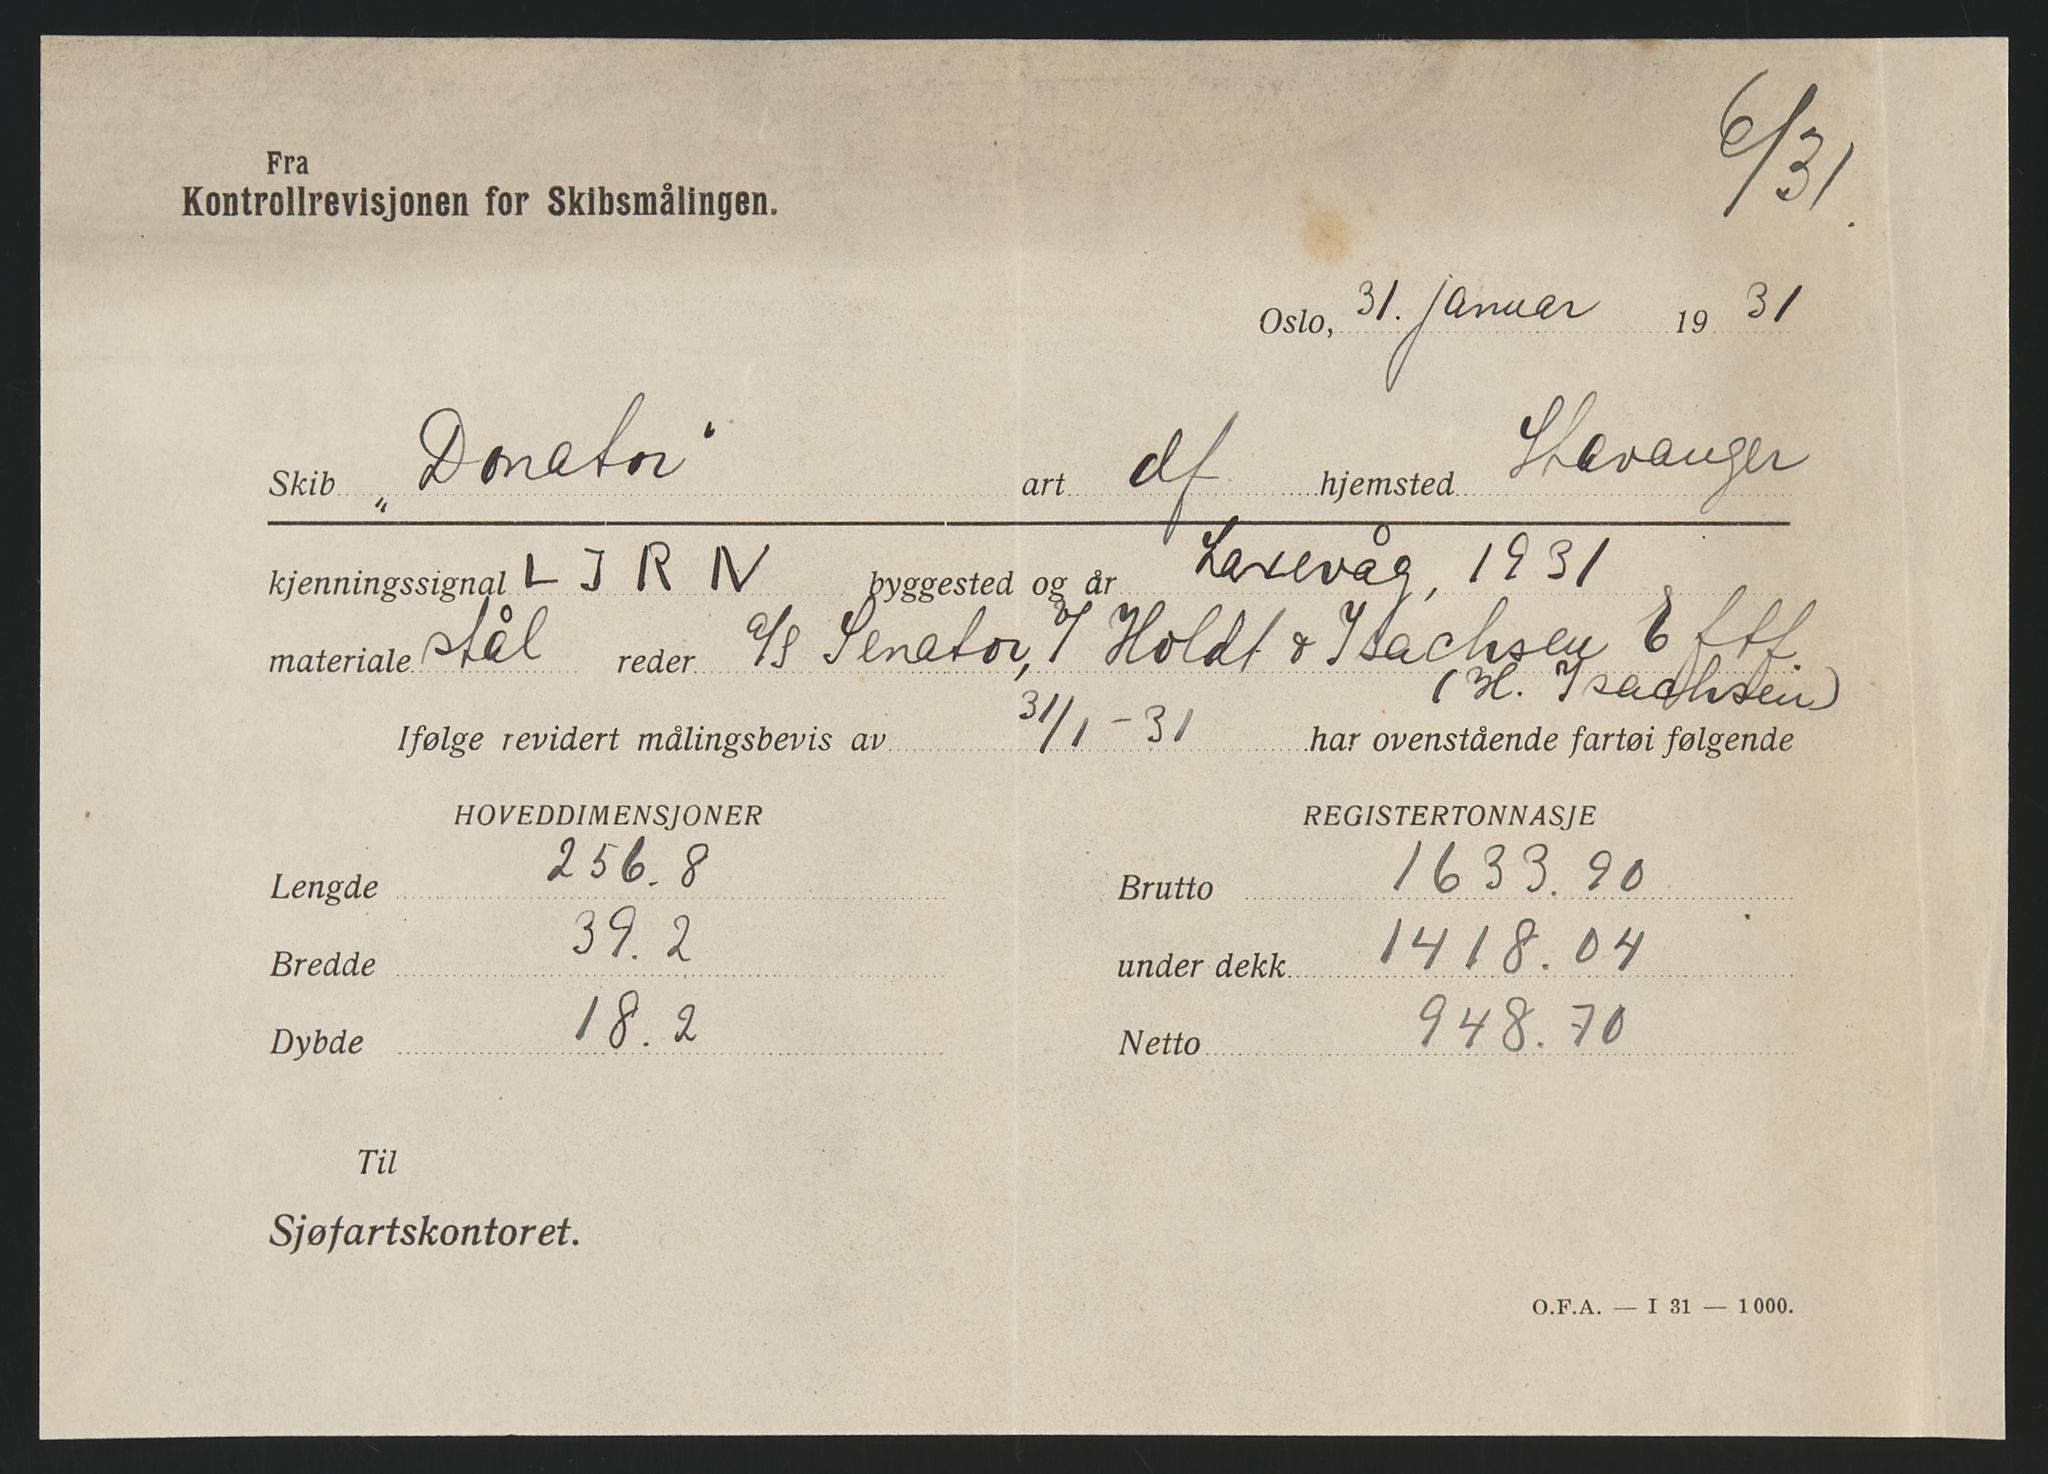 6/31.
Fra
Kontrollrevisjonen for Skibsmålingen.
Oslo, 31. januar 19 31
Skib „Donator“ art df hjemsted Stavanger
kjenningssignal L J R N byggested og år Laxevåg, 1931
materiale stål reder a/s Senator, v/ Holdt & Isachsen Eftf.
(H. Isachsen)
Ifølge revidert målingsbevis av 31/1 – 31 har ovenstående fartøi følgende
HOVEDDIMENSJONER REGISTERTONNASJE
Lengde 256.8 Brutto 1633.90
Bredde 39.2 under dekk 1418.04
Dybde 18.2 Netto 948.70
Til
Sjøfartskontoret.
O.F.A. — I 31 — 1000.